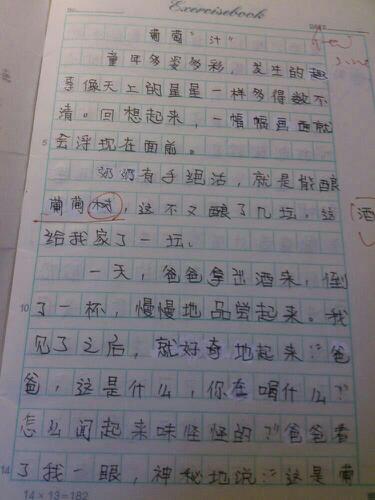 Exercisebook
葡萄"汁"
童年多姿多彩，发生的趣
事像天上的星星一样多得数不
清。回想起来，一幅幅画面就
5
会浮现在面前。
奶奶有手绝活，就是能酿
葡萄 这不又酿了几坛，这
酒
给我家了一坛。
一天，爸爸拿出酒来，倒
10
了一杯，慢慢地品尝起来。我
见了之后，就好奇地起来："爸
爸，这是什么，你在喝什么？
怎么闻起来味怪怪的？"爸爸看
14
了我一眼，神秘地说："这是葡
14×13=182